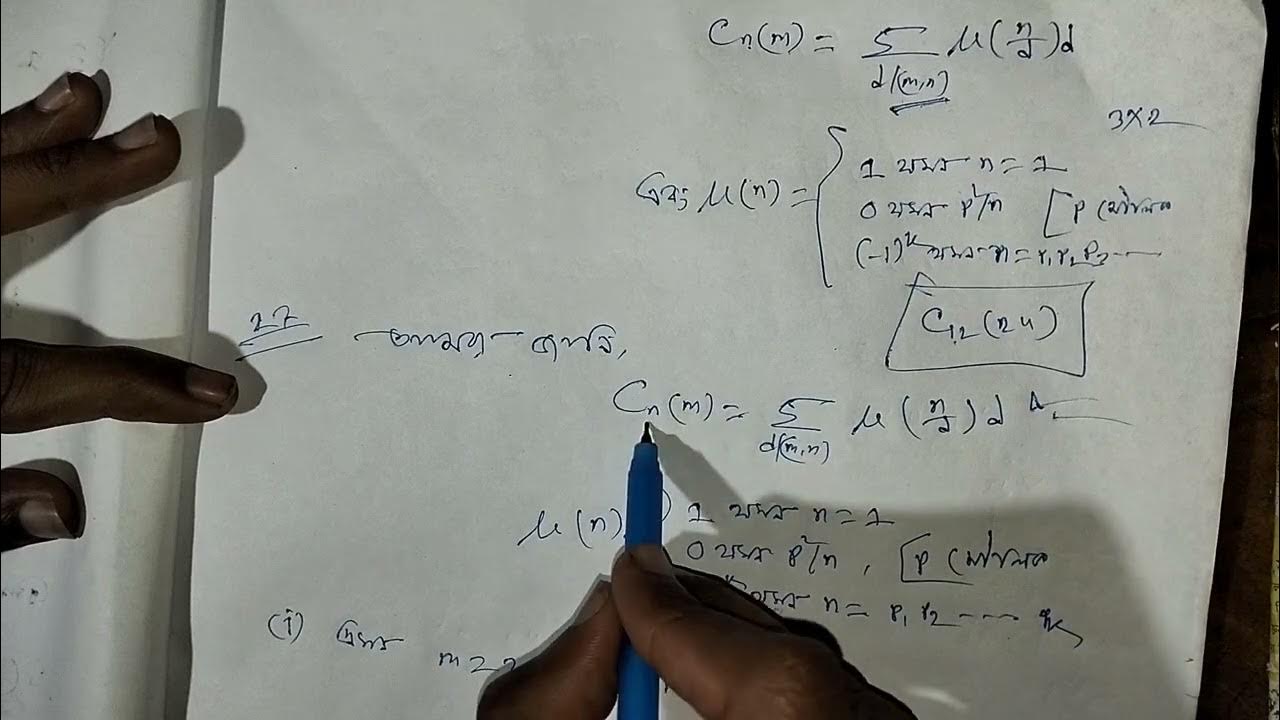 Cₙ(m) = Σ μ(n/d)d
d|(m,n)
3×2
এবং μ(n) =
1 যখন n = 1
0 যখন p²|n [p মৌলিক
(-1)ᵏ যখন n = p₁p₂p₃ ----
C₁₂(24)
27 আমরা জানি,
Cₙ(m) = Σ μ(n/d)d
d|(m,n)
μ(n)
1 যখন n = 1
0 যখন p²|n, [p মৌলিক
যখন n = p₁p₂ ---- pₖ
(i) m =